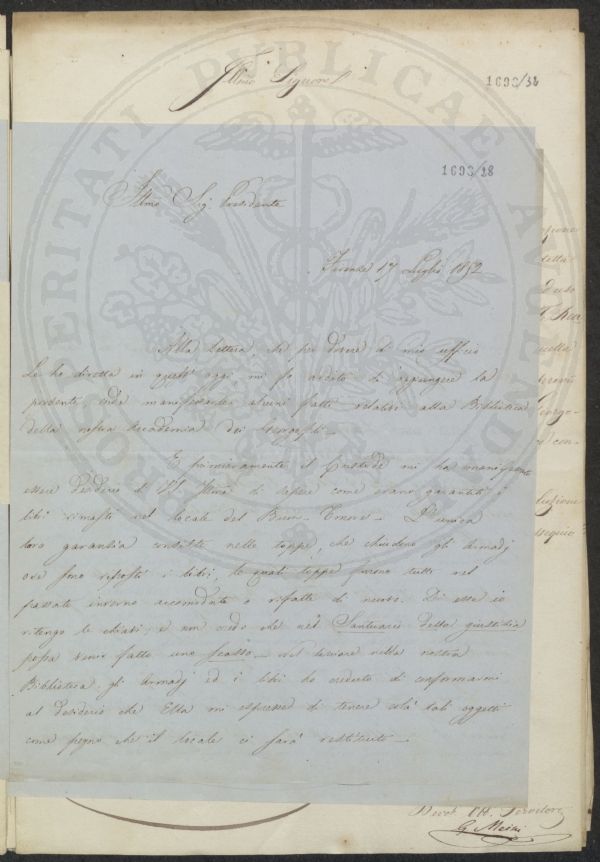 Illmo Signore
1693/38
1693/18
PROSPERITATI PUBLICAE AUGENDAE
Illmo Sig. Presidente
Firenze 17 Luglio 1852
Alla lettera, che per dovere di mio ufficio
Le ho diretta in quest' oggi mi fo ardito di aggiungere la
presente, onde manifestarle alcuni fatti relativi alla Biblioteca
della nostra Accademia dei Georgofili.
E primieramente il Custode mi ha manifestato
essere desiderio di V.S. Illma di sapere come erano garantiti i
libri rimasti nel locale del Buon-Umore. L'unica
loro garanzia consiste nelle toppe, che chiudono gli armadj
ove sono riposti i libri, le quali toppe furono tutte nel
passato inverno accomodate o rifatte di nuovo. Di esse io
ritengo le chiavi; e non credo che nel Santuario della giustizia
possa venir fatto uno scasso. Nel lasciare nella nostra
Biblioteca gli armadj ed i libri ho creduto di conformarmi
al desiderio che Ella mi espresse di tenere colà tali oggetti
come pegno che il locale ci sarà restituito.
Devot. Obb. Servitore